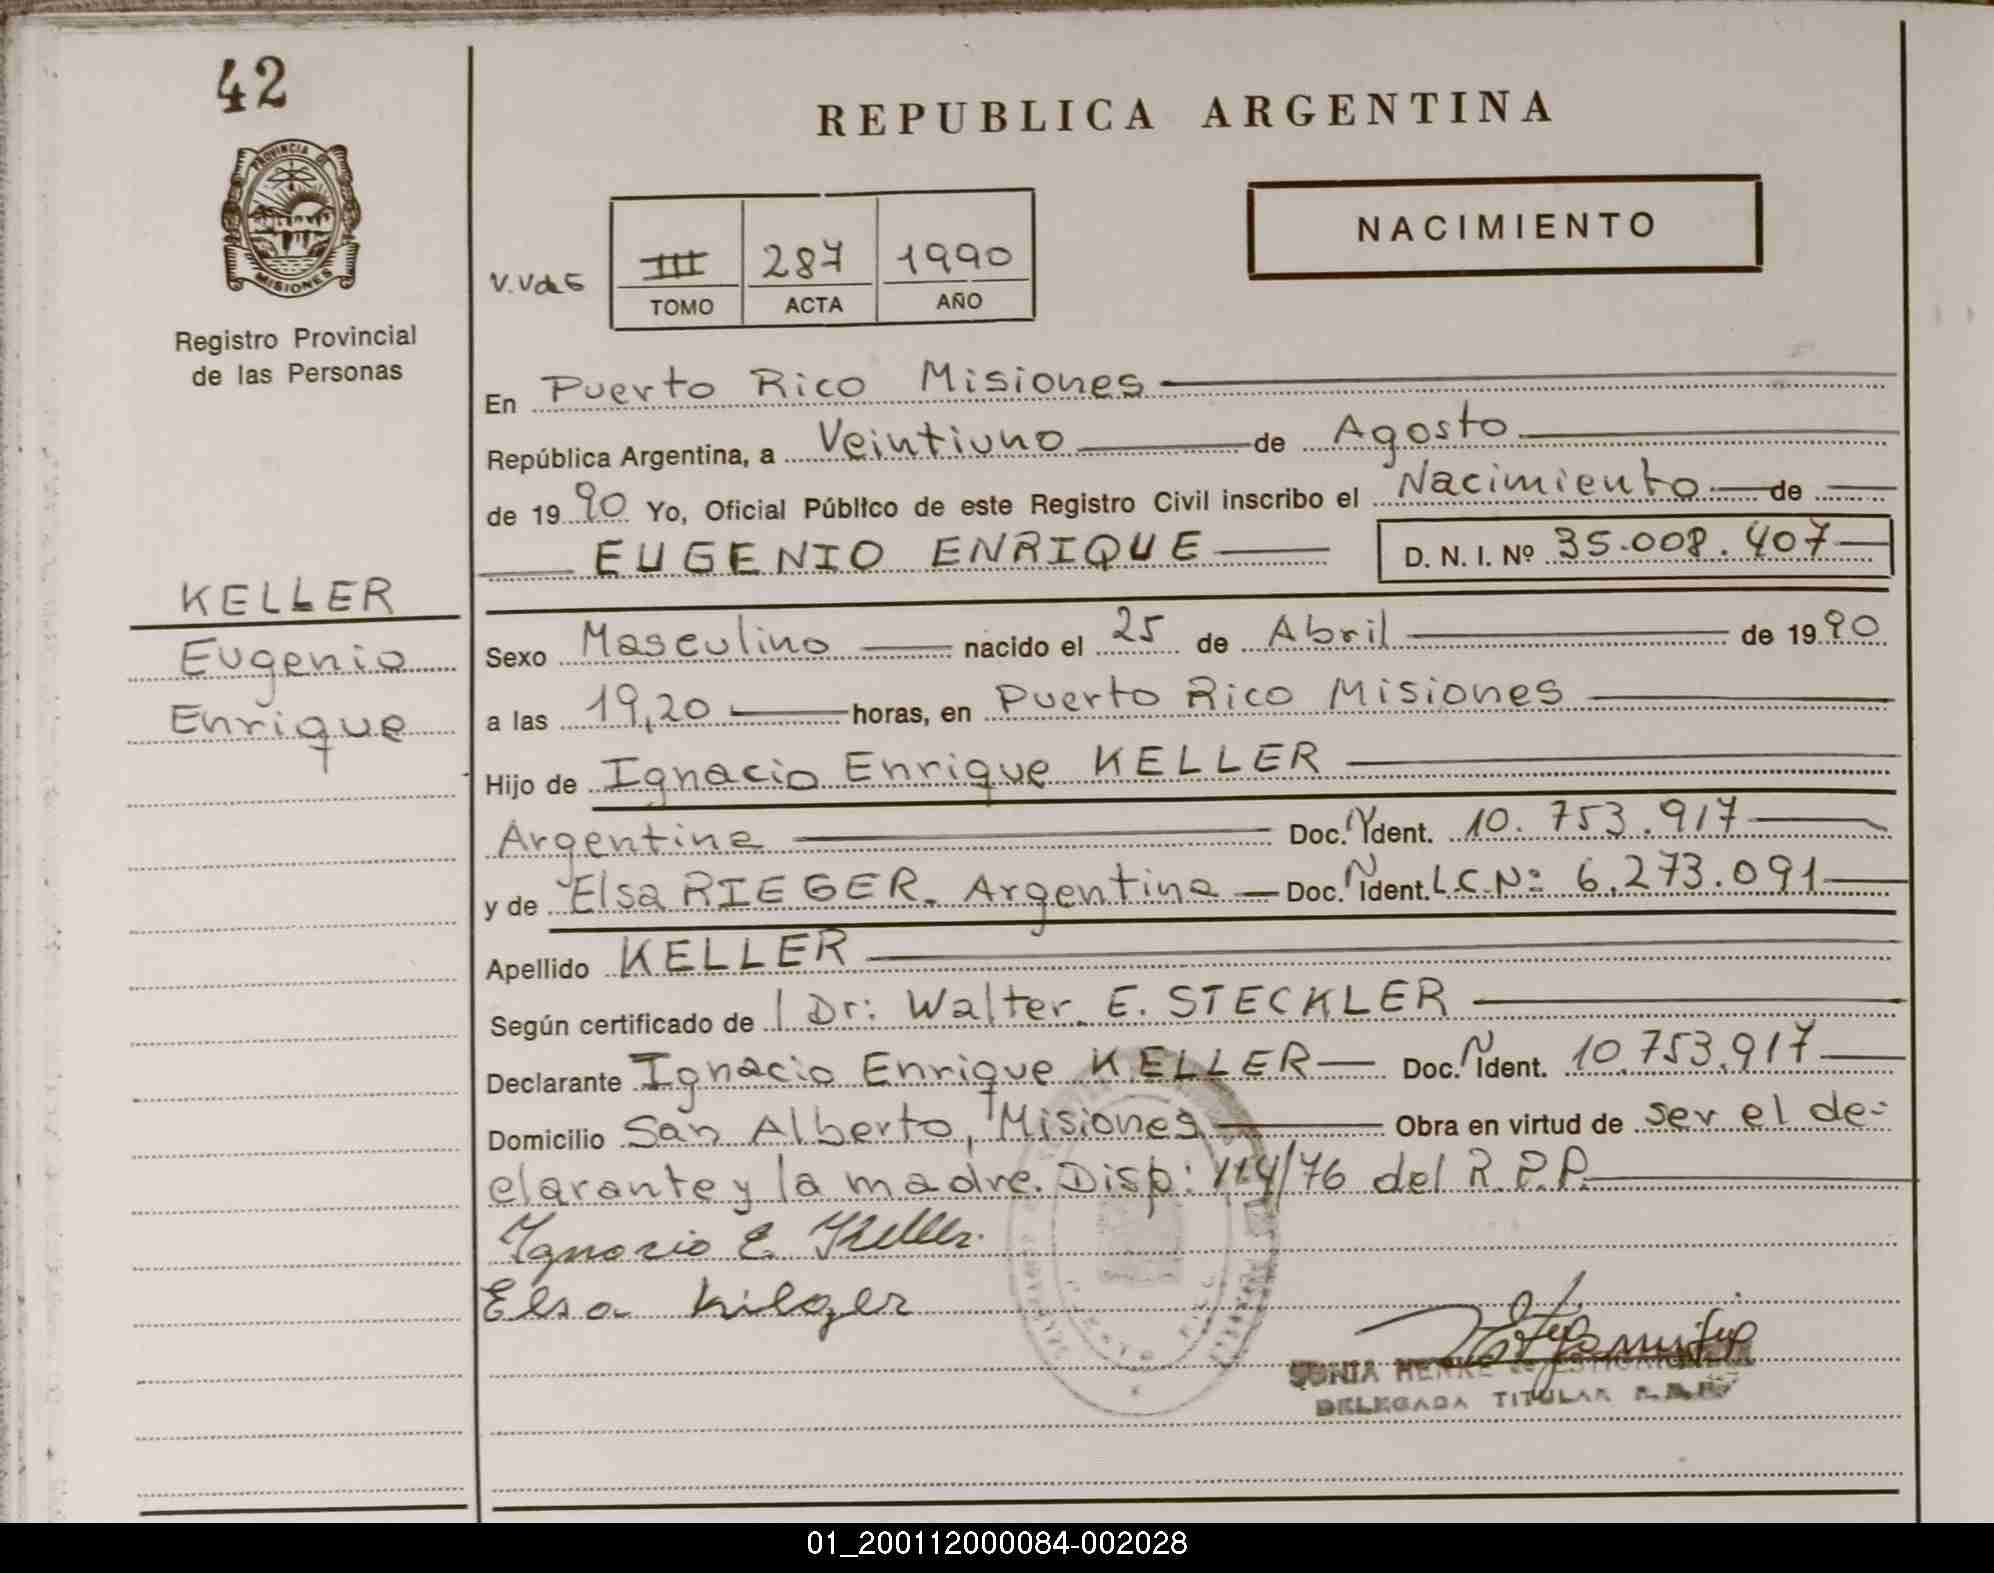 42
PROVINCIA DE
MISIONES
Registro Provincial
de las Personas
KELLER
Eugenio
Enrique
REPUBLICA ARGENTINA
NACIMIENTO
V.Vde5
III 287 1990
TOMO ACTA AÑO
En Puerto Rico Misiones
República Argentina, a Veintiuno de Agosto
de 1990 Yo, Oficial Público de este Registro Civil inscribo el Nacimiento de
EUGENIO ENRIQUE D. N. I. Nº 35.008.407
Sexo Masculino nacido el 25 de Abril de 1990
a las 19,20 horas, en Puerto Rico Misiones
Hijo de Ignacio Enrique KELLER
Argentina Doc. Ident. 10.753.917
y de Elsa RIEGER. Argentina Doc. Ident. L.C.Nº 6.273.091
Apellido KELLER
Según certificado de Dr: Walter E. STECKLER
Declarante Ignacio Enrique KELLER Doc. Ident. 10.753.917
Domicilio San Alberto, Misiones Obra en virtud de ser el de-
clarante y la madre. Disp: 114/76 del R.P.P.
Ignacio E. Keller
Elsa
SONIA
DELEGADA TITULAR
01_200112000084-002028